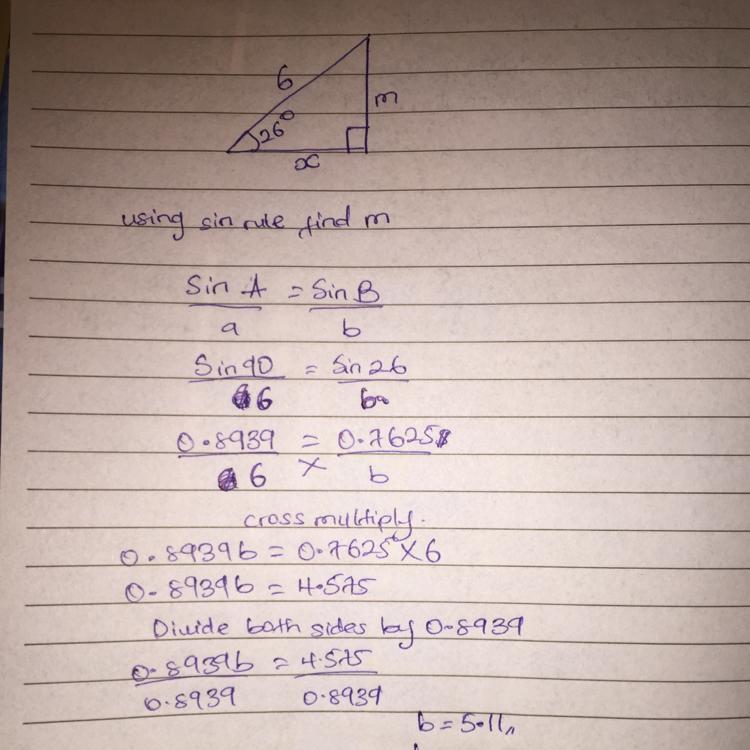 6
m
26°
x
using sin rule find m
Sin A = Sin B
a b
Sin 90 = Sin 26
6 b
0.8939 = 0.7625
6 x b
cross multiply.
0.8939b = 0.7625 x 6
0.8939b = 4.575
Divide both sides by 0.8939
0.8939b = 4.575
0.8939 0.8939
b = 5.11